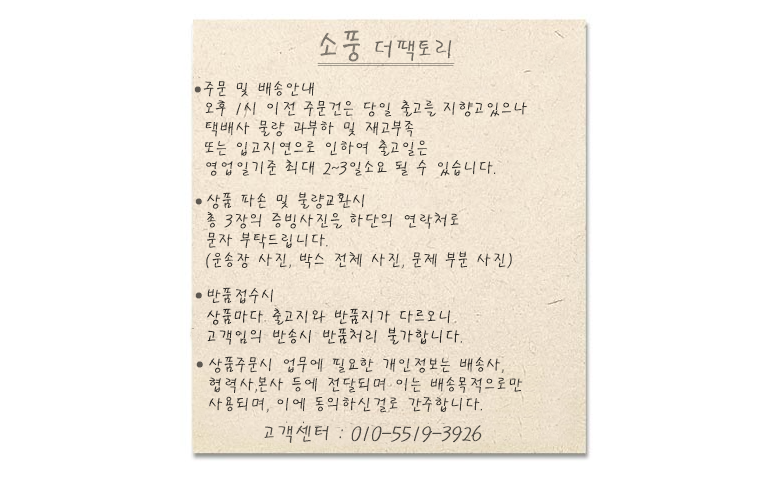 소풍 더팩토리
●주문 및 배송안내
오후 1시 이전 주문건은 당일 출고를 지향고있으나
택배사 물량 과부하 및 재고부족
또는 입고지연으로 인하여 출고일은
영업일기준 최대 2~3일소요 될 수 있습니다.
●상품 파손 및 불량교환시
총 3장의 증빙사진을 하단의 연락처로
문자 부탁드립니다.
(운송장 사진, 박스 전체 사진, 문제 부분 사진)
●반품접수시
상품마다 출고지와 반품지가 다르오니.
고객임의 반송시 반품처리 불가합니다.
●상품주문시 업무에 필요한 개인정보는 배송사,
협력사,본사 등에 전달되며 이는 배송목적으로만
사용되며, 이에 동의하신걸로 간주합니다.
고객센터 : 010-5519-3926